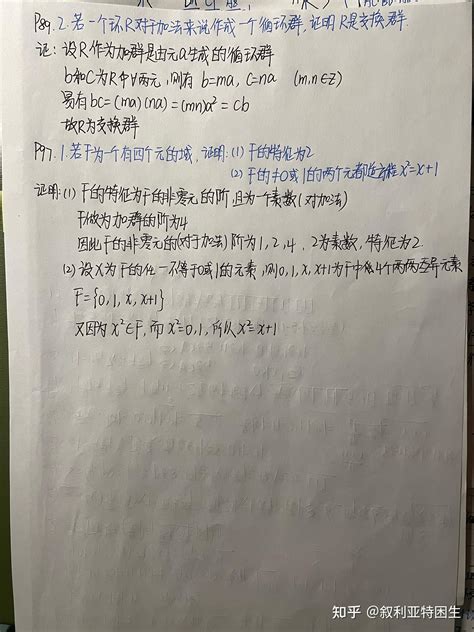 P89. 2. 若一个环R对于加法来说作成一个循环群,证明R是交换群.
证: 设R作为加群是由元a生成的循环群
b和c为R中∀两元,则有 b=ma, c=na (m,n∈Z)
易有bc=(ma)(na)=(mn)a²=cb
故R为交换群
P97. 1.若F为一个有四个元的域,证明:(1) F的特征为2
(2) F的≠0或1的两个元都适合方程x²=x+1
证明:(1) F的特征为F的非零元的阶,且为一个素数(对加法)
F做为加群的阶为4
因此F的非零元的(对于加法)阶为1,2,4. 2为素数,特征为2
(2) 设X为F的任一不等于0或1的元素,则0,1,x,x+1为F中的4个两两互异元素
F={0,1,x,x+1}
又因为x²∈F,而x²=0,1,所以x²=x+1
知乎 @叙利亚特困生